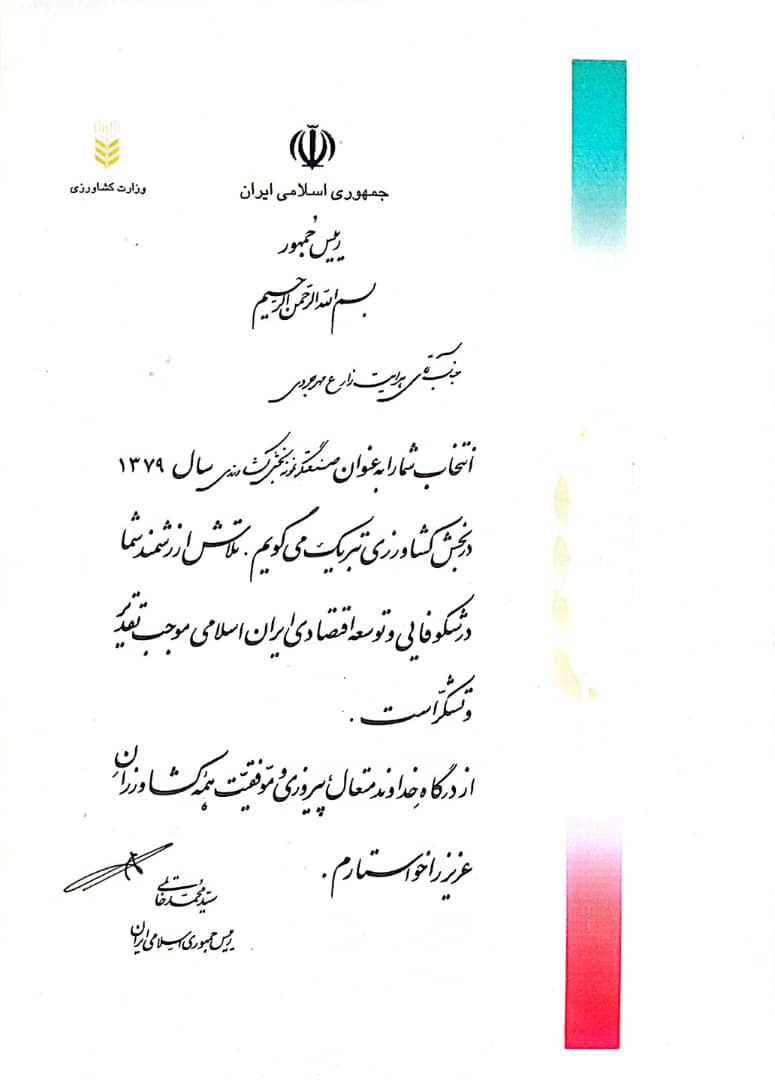 جمهوری اسلامی ایران
وزارت کشاورزی
رئیس جمهور
بسم الله الرحمن الرحیم
جناب آقای هدایت زارع مهرجردی
انتخاب شما را به عنوان صنعتگر نمونه بخش کشاورزی سال ۱۳۷۹
در بخش کشاورزی تبریک می گویم . تلاش ارزشمند شما
در شکوفایی و توسعه اقتصادی ایران اسلامی موجب تقدیر
و تشکّر است .
از درگاه خداوند متعال پیروزی و موّفقیّت همۀ کشاورزانِ
عزیز را خواستارم .
سیّد محمّد خاتمی
رئیس جمهوری اسلامی ایران